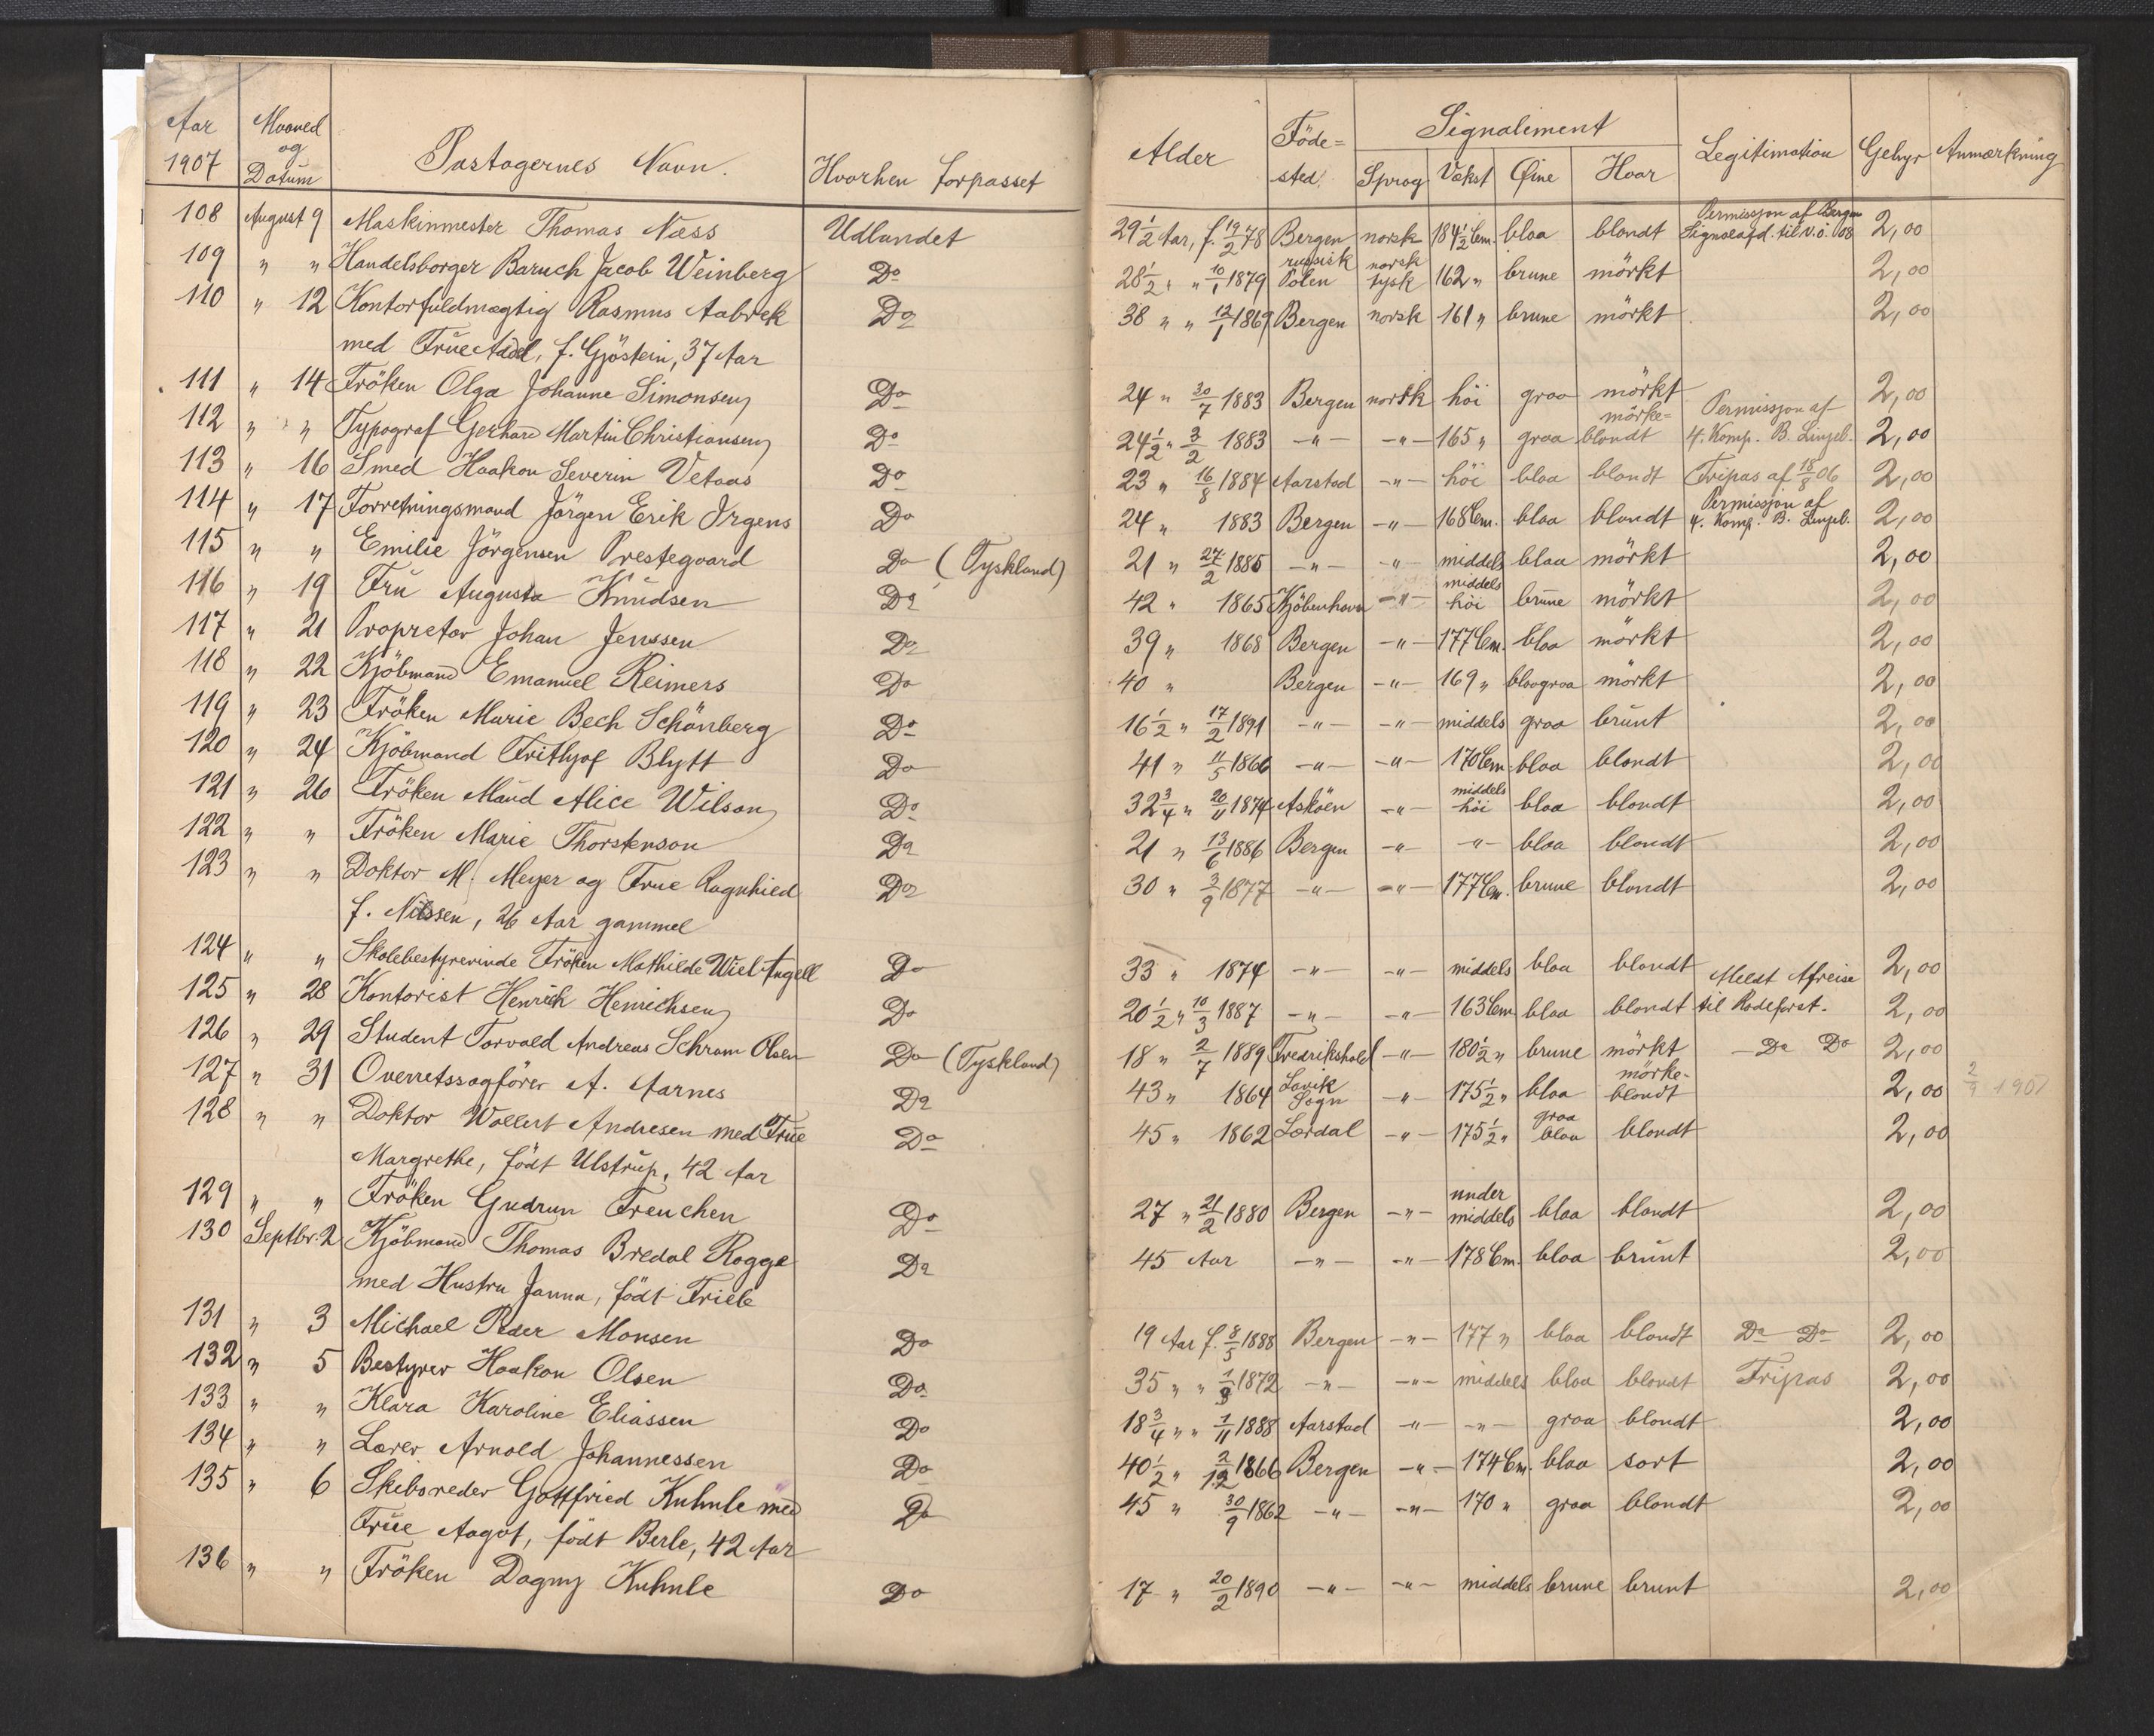 Aar 1907 | Maaned og Datum | Pastagernes Navn. | Hvorhen forpasset | Alder | Födested | Signalement: Sprog | Vækst | Øine | Haar | Legitimation | Gebyr | Anmærkning
108 August 9 Maskinmester Thomas Næss Udlandet 29 1/2 Aar, f. 19/2 78 Bergen norsk 184 1/2 Cm. blaa blondt Permissjon af Bergen Signalafd. til V.Ö. 08 2,00
109 " " Handelsborger Baruch Jacob Weinberg Do 28 1/2 " " 10/1 1879 russisk Polen norsk tysk 162 " brune mörkt 2,00
110 " 12 Kontorfuldmægtig Rasmus Aabrek Do 38 " " 12/1 1869 Bergen norsk 161 " brune mörkt 2,00
med Frue Adel, f. Gjöstein, 37 Aar
111 " 14 Fröken Olga Johanne Simonsen Do 24 " 30/7 1883 Bergen norsk höi graa mörkt 2,00
112 " " Typograf Gerhard Martin Christiansen Do 24 1/2 " 3/2 1883 -"- -"- 165 " graa mörke= blondt Permissjon af 4. Komp. B. Linjeb. 2,00
113 " 16 Smed Haakon Severin Vetaas Do 23 " 16/8 1884 Aarstad -"- höi blaa blondt Fripas af 18/8 06 2,00
114 " 17 Forretningsmand Jörgen Erik Irgens Do 24 " 1883 Bergen -"- 168 Cm. blaa blondt Permisjon af 4. Komp. B. Linjeb. 2,00
115 " " Emilie Jörgensen Prestegaard Do (Tyskland) 21 " 27/2 1886 -"- -"- middels blaa mörkt 2,00
116 " 19 Fru Augusta Knudsen Do 42 " 1865 Kjöbenhavn -"- middels höi brune mörkt 2,00
117 " 21 Propretær Johan Jenssen Do 39 " 1868 Bergen -"- 177 Cm. blaa mörkt 2,00
118 " 22 Kjöbmand Emanuel Reimers Do 40 " Bergen -"- 169 " blaagraa mörkt 2,00
119 " 23 Fröken Marie Bech Schönberg Do 16 1/2 " 17/2 1891 -"- -"- middels graa brunt 2,00
120 " 24 Kjöbmand Frithjof Blytt Do 41 " 11/5 1866 -"- -"- 170 Cm. blaa blondt 2,00
121 " 26 Fröken Maud Alice Wilson Do 32 3/4 " 20/11 1874 Asköen -"- middels höi blaa blondt 2,00
122 " " Fröken Marie Thorstenson Do 21 " 13/6 1886 Bergen -"- -"- blaa blondt 2,00
123 " " Doktor M. Meyer og Frue Ragnhild Do 30 " 3/9 1877 -"- -"- 177 Cm. brune blondt 2,00
f. Nilssen, 26 Aar gammel
124 " " Skolebestyrerinde Fröken Mathilde Wiel Angell Do 33 " 1874 -"- -"- middels blaa blondt 2,00
125 " 28 Kontorist Henrich Henrichsen Do 20 1/2 " 10/3 1887 -"- -"- 163 Cm. blaa blondt Meldt Afreise til Rodeforst. 2,00
126 " 29 Student Torvald Andreas Schram Olsen Do (Tyskland) 18 " 2/7 1889 Fredrikshald -"- 180 1/2 " brune mörkt Do Do 2,00
127 " 31 Overretssagförer A. Aarnes Do 43 " 1864 Lavik Sogn -"- 175 1/2 " blaa mörke- blondt 2,00 2/9 1907
128 " " Doktor Wollert Andresen med Frue Do 45 " 1862 Lærdal -"- 175 1/2 " graa blaa blondt 2,00
Margrethe, födt Ulstrup, 42 Aar
129 " " Fröken Gudrun Freuchen Do 27 " 21/2 1880 Bergen -"- under middels blaa blondt 2,00
130 Septbr. 2 Kjöbmand Thomas Bredal Rogge Do 45 Aar -"- -"- 178 Cm. blaa brunt 2,00
med Hustru Janna, födt Friele
131 " 3 Michael Peder Monsen Do 19 Aar f. 8/5 1888 Bergen -"- 177 " blaa blondt Do Do 2,00
132 " 5 Bestyrer Haakon Olsen Do 35 " " 1/9 1872 -"- -"- middels blaa blondt Fripas 2,00
133 " " Klara Karoline Eliassen Do 18 3/4 " " 1/11 1888 Aarstad -"- -"- graa blondt 2,00
134 " " Lærer Arnold Johannessen Do 40 1/2 " 2/12 1866 Bergen -"- 174 Cm. blaa sort 2,00
135 " 6 Skibsreder Gottfried Kuhnle med Do 45 " 30/9 1862 -"- -"- 170 " graa blondt 2,00
Frue Aagot, födt Berle, 42 Aar
136 " " Fröken Dagny Kuhnle Do 17 " 20/2 1890 -"- -"- middels brune brunt 2,00